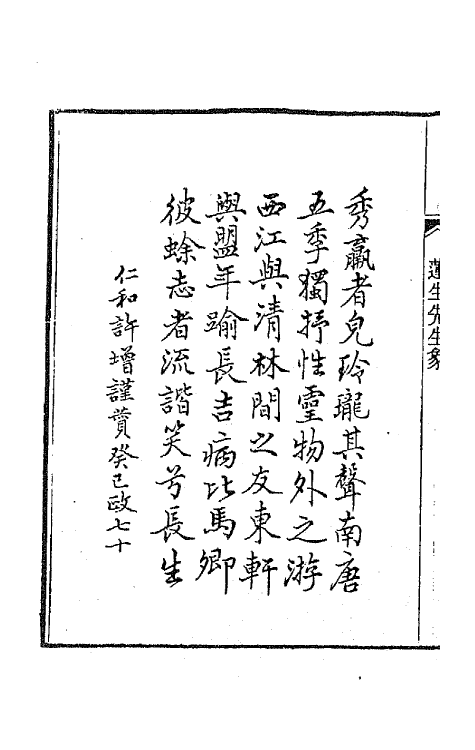 蓮生先生象
秀羸者皃玲瓏其聲南唐
五季獨抒性靈物外之游
西江與清林間之友東軒
與盟年踰長吉病比馬卿
彼蜍志者流諧笑兮長生
仁和許增謹贊癸巳政七十